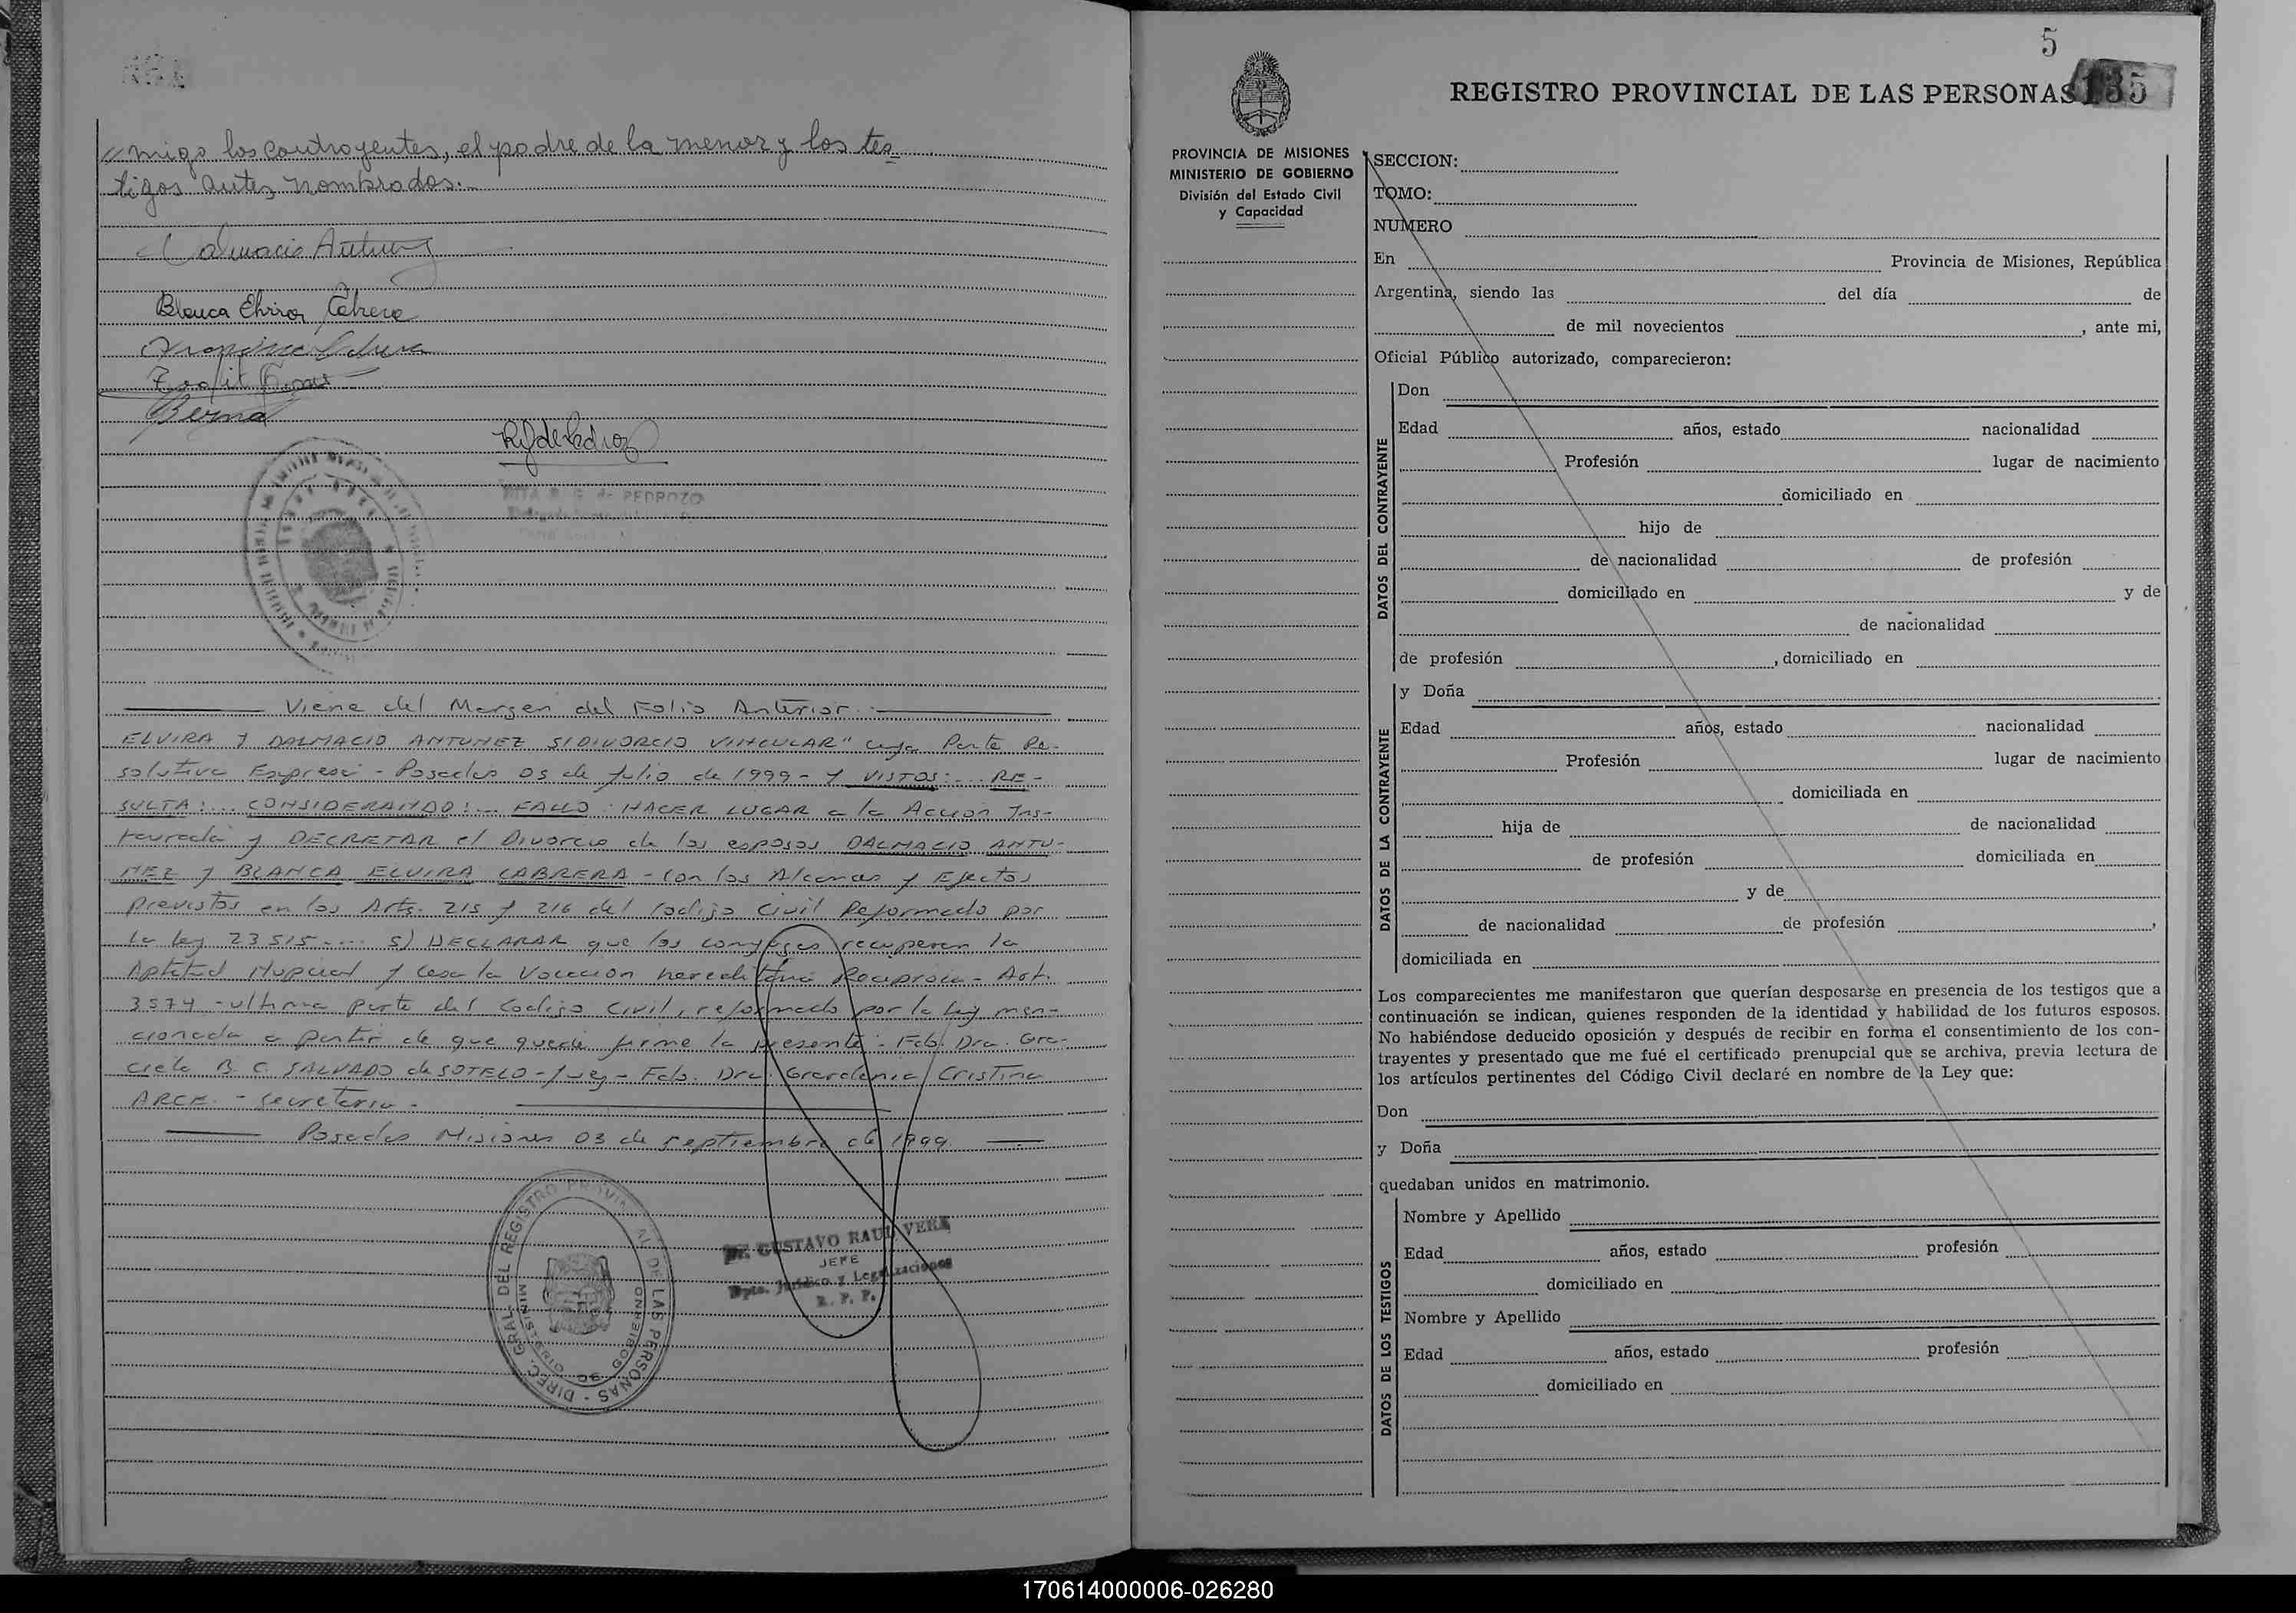 migo los contrayentes, el padre de la menor y los tes-
tigos antes nombrados.-
Dalmacio Antunez
Blanca Elvira Cabrera
Cabrera
Berna
R G de Pedrozo
RITA R. G. de PEDROZO
Viene del Margen del Folio Anterior.-
ELVIRA Y DALMACIO ANTUNEZ S/DIVORCIO VINCULAR" cuya Parte Re-
solutiva Expresa - Posadas 05 de Julio de 1999 - Y VISTOS:... RE-
SULTA:... CONSIDERANDO:... FALLO: HACER LUGAR a la Acción Ins-
taurada y DECRETAR el Divorcio de los esposos DALMACIO ANTU-
NEZ y BLANCA ELVIRA CABRERA - con los Alcances y Efectos
previstos en los Arts. 215 y 216 del Codigo Civil Reformado por
la ley 23.515.... 5) DECLARAR que los conyuges recuperan la
Aptitud Nupcial y cesa la Vocacion hereditaria Reciproca - Art.
3574 - ultima parte del Codigo Civil, reformado por la ley men-
cionada a partir de que quede firme la presente - Fdo. Dra. Gra-
ciela B. C. SALVADO de SOTELO - Juez - Fdo. Dra. Cristina
ARCE. - Secretaria -
Posadas Misiones 03 de septiembre de 1999.
DIREC. GRAL. DEL REGISTRO PROVINCIAL DE LAS PERSONAS
MINISTERIO DE GOBIERNO
Dr. GUSTAVO RAUL VERA
JEFE
Dpto. Jurídico y Legalizaciones
R. P. P.
5
135
REGISTRO PROVINCIAL DE LAS PERSONAS
PROVINCIA DE MISIONES
MINISTERIO DE GOBIERNO
División del Estado Civil
y Capacidad
SECCION:
TOMO:
NUMERO
En Provincia de Misiones, República
Argentina, siendo las del día de
de mil novecientos , ante mi,
Oficial Público autorizado, comparecieron:
DATOS DEL CONTRAYENTE
Don
Edad años, estado nacionalidad
Profesión lugar de nacimiento
domiciliado en
hijo de
de nacionalidad de profesión
domiciliado en y de
de nacionalidad
de profesión , domiciliado en
DATOS DE LA CONTRAYENTE
y Doña
Edad años, estado nacionalidad
Profesión lugar de nacimiento
domiciliada en
hija de de nacionalidad
de profesión domiciliada en
y de
de nacionalidad de profesión ,
domiciliada en
Los comparecientes me manifestaron que querían desposarse en presencia de los testigos que a
continuación se indican, quienes responden de la identidad y habilidad de los futuros esposos.
No habiéndose deducido oposición y después de recibir en forma el consentimiento de los con-
trayentes y presentado que me fué el certificado prenupcial que se archiva, previa lectura de
los artículos pertinentes del Código Civil declaré en nombre de la Ley que:
Don
y Doña
quedaban unidos en matrimonio.
DATOS DE LOS TESTIGOS
Nombre y Apellido
Edad años, estado profesión
domiciliado en
Nombre y Apellido
Edad años, estado profesión
domiciliado en
170614000006-026280